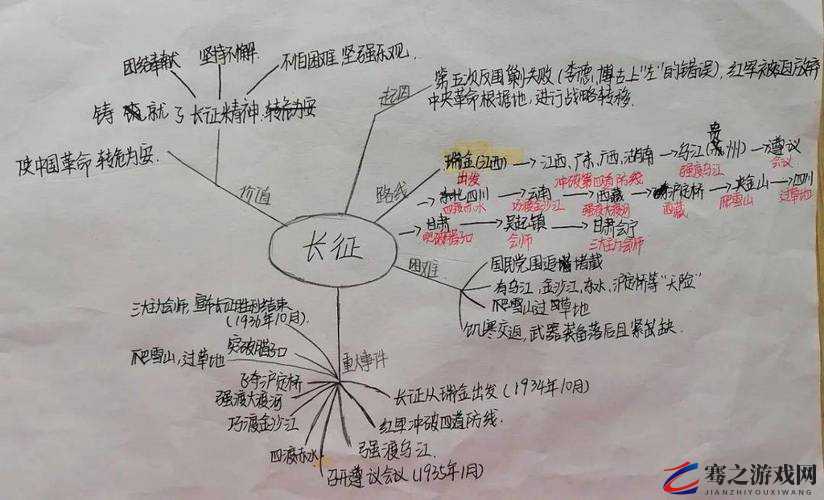 团结奉献 坚持不懈 不怕困难 坚强乐观
铸就了长征精神
使中国革命转危为安
价值
起因
第五次反围剿失败(李德,博古上"左"的错误),红军被迫放弃
中央革命根据地,进行战略转移.
路线
瑞金(江西) → 江西、广东、广西、湖南 → 乌江(贵州) → 遵议
出发 冲破第四道防线 强渡乌江 会议
→ 四川 → 云南 → 西藏 → 泸定桥 → 夹金山 → 四川
四渡赤水 巧渡金沙江 强渡大渡河 西藏 爬雪山 过草地
→ 甘肃 → 吴起镇 → 甘肃会宁
腊子口 会师 三大主力会师
长征
困难
国民党围追堵截
有乌江,金沙江,赤水,泸定桥等"天险"
爬雪山过草地
饥寒交迫,武器装备落后且紧缺.
重大事件
(1936年10月)
爬雪山,过草地
突破腊子口
飞夺泸定桥
强渡大渡河
巧渡金沙江
四渡赤水
召开遵议会议(1935年1月)
强渡乌江
红军冲破四道防线.
长征从瑞金出发(1934年10月)
骞之游戏网
JIANZHIYOUXIWANG